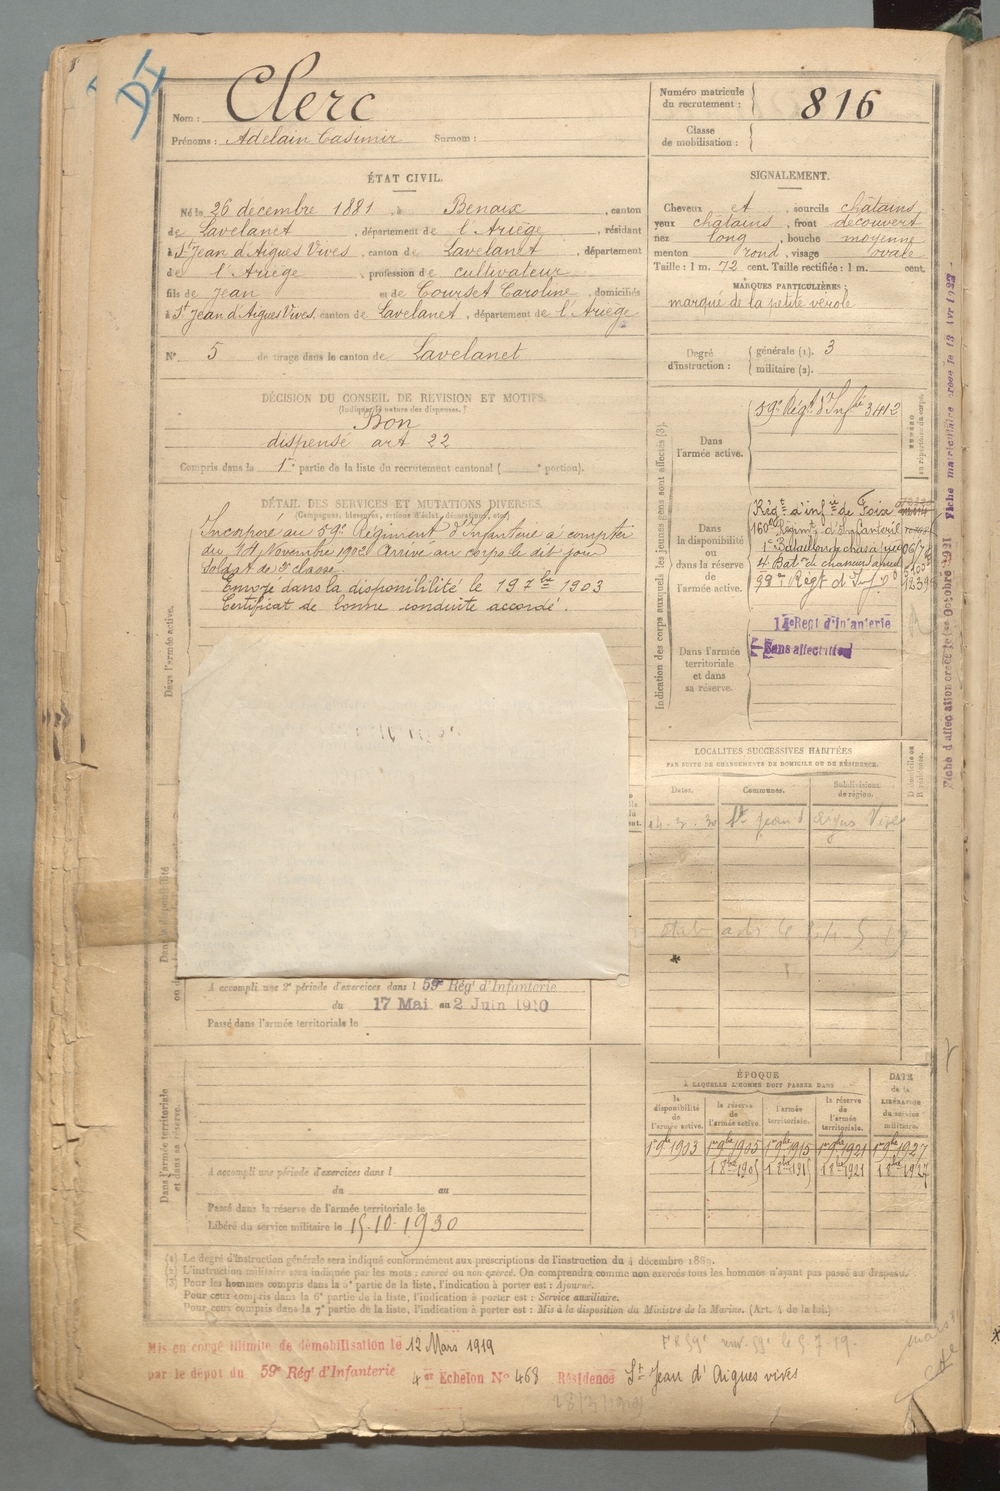 DI
Nom : Clerc
Prénoms : Adelain Casimir Surnom :
Numéro matricule
du recrutement : 816
Classe
de mobilisation :
ÉTAT CIVIL.
Né le 26 decembre 1881, à Benaix, canton
de Lavelanet, département de l'Ariège, résidant
à St Jean d'Aigues Vives, canton de Lavelanet, département
de l'Ariège, profession de cultivateur
fils de Jean et de Courset Caroline, domiciliés
à St Jean d'Aigues Vives, canton de Lavelanet, département de l'Ariège
N° 5 de tirage dans le canton de Lavelanet
SIGNALEMENT.
Cheveux et, sourcils châtains
yeux châtains, front découvert
nez long, bouche moyenne
menton rond, visage ovale
Taille : 1 m. 72 cent. Taille rectifiée : 1 m. cent.
MARQUES PARTICULIÈRES :
marqué de la petite verole
Degré
d'instruction :
générale (1). 3
militaire (2).
DÉCISION DU CONSEIL DE REVISION ET MOTIFS.
(Indiquer la nature des dispenses.)
Bon
dispensé art 22
Compris dans la 1re partie de la liste du recrutement cantonal ( e portion).
DÉTAIL DES SERVICES ET MUTATIONS DIVERSES.
(Campagnes, blessures, actions d'éclat, décorations, etc.)
Incorporé au 59e Régiment d'Infanterie à compter
du 14 Novembre 1902 Arrivé au corps le dit jour
soldat de 2e classe.
Envoyé dans la disponibilité le 19 7bre 1903
Certificat de bonne conduite accordé.
Dans l'armée active.
Indication des corps auxquels les jeunes gens sont affectés (3).
NUMÉRO
au répertoire du corps.
Dans
l'armée active.
59e Régt d'Infie 3412
Dans
la disponibilité
ou
dans la réserve
de
l'armée active.
Régt d'infie de Foix
160e Régimt d'Infanterie
1er Bataillon de chass à pied
4e Batn de chasseurs à pied
99e Régt d'Infie
Dans l'armée
territoriale
et dans
sa réserve.
14e Regt d'Infanterie
Sans affectation
Fiche d'affectation créée le 1er Octobre 1921 Fiche matriculaire créée le 13 Avr 1927
LOCALITÉS SUCCESSIVES HABITÉES
PAR SUITE DE CHANGEMENTS DE DOMICILE OU DE RÉSIDENCE.
Dates. Communes. Subdivisions
de région.
D domicile ou
R résidence.
St Jean d'Aigues Vives
Dans la disponibilité
A accompli une 2e période d'exercices dans l 59e Régt d'Infanterie
du 17 Mai au 2 Juin 1910
Passé dans l'armée territoriale le
Dans l'armée territoriale
et dans sa réserve.
A accompli une période d'exercices dans l
du au
Passé dans la réserve de l'armée territoriale le
Libéré du service militaire le 15.10.1930
ÉPOQUE
À LAQUELLE L'HOMME DOIT PASSER DANS
DATE
de la
LIBÉRATION
du service
militaire.
la
disponibilité
de
l'armée active.
la réserve
de
l'armée active.
l'armée
territoriale.
la réserve
de
l'armée
territoriale.
1er 9bre 1903 1er 9bre 1905 1er 9bre 1915 1er 9bre 1921 1er 9bre 1927
1 8bre 1905 1 8bre 1915 1 8bre 1921 1 8bre 1927
(1) Le degré d'instruction générale sera indiqué conformément aux prescriptions de l'instruction du 4 décembre 1889.
(2) L'instruction militaire sera indiquée par les mots : exercé ou non exercé. On comprendra comme non exercés tous les hommes n'ayant pas passé au drapeau.
(3) Pour les hommes compris dans la 5e partie de la liste, l'indication à porter est : Ajourné.
Pour ceux compris dans la 6e partie de la liste, l'indication à porter est : Service auxiliaire.
Pour ceux compris dans la 7e partie de la liste, l'indication à porter est : Mis à la disposition du Ministre de la Marine. (Art. 4 de la loi.)
Mis en congé illimité de démobilisation le 12 Mars 1919
par le dépot du 59e Régt d'Infanterie 4e Echelon N° 468 Résidence St Jean d'Aigues vives
28/3/1919